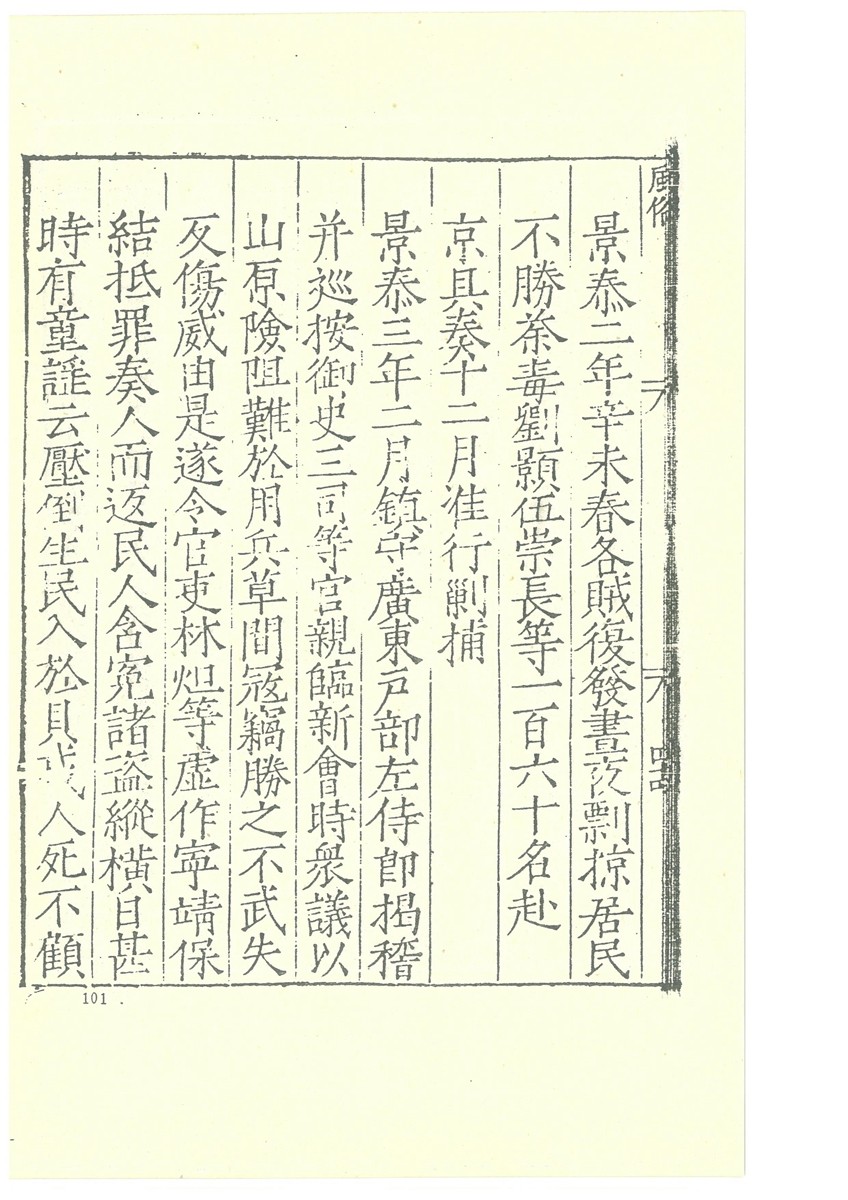 風俗
景泰二年辛未春各賊復發晝夜剽掠居民
不勝荼毒劉顯伍崇長等一百六十名赴
京具奏十二月准行剿捕
景泰三年二月鎮守廣東戶部左侍郎揭稽
并巡按御史三司等官親臨新會時衆議以
山原險阻難於用兵草間冦竊勝之不武失
反傷威由是遂令官吏林烜等虛作寧靖保
結抵罪奏人而返民人含寃諸盜縱橫日甚
時有童謡云壓倒生民入於人死不顧
101